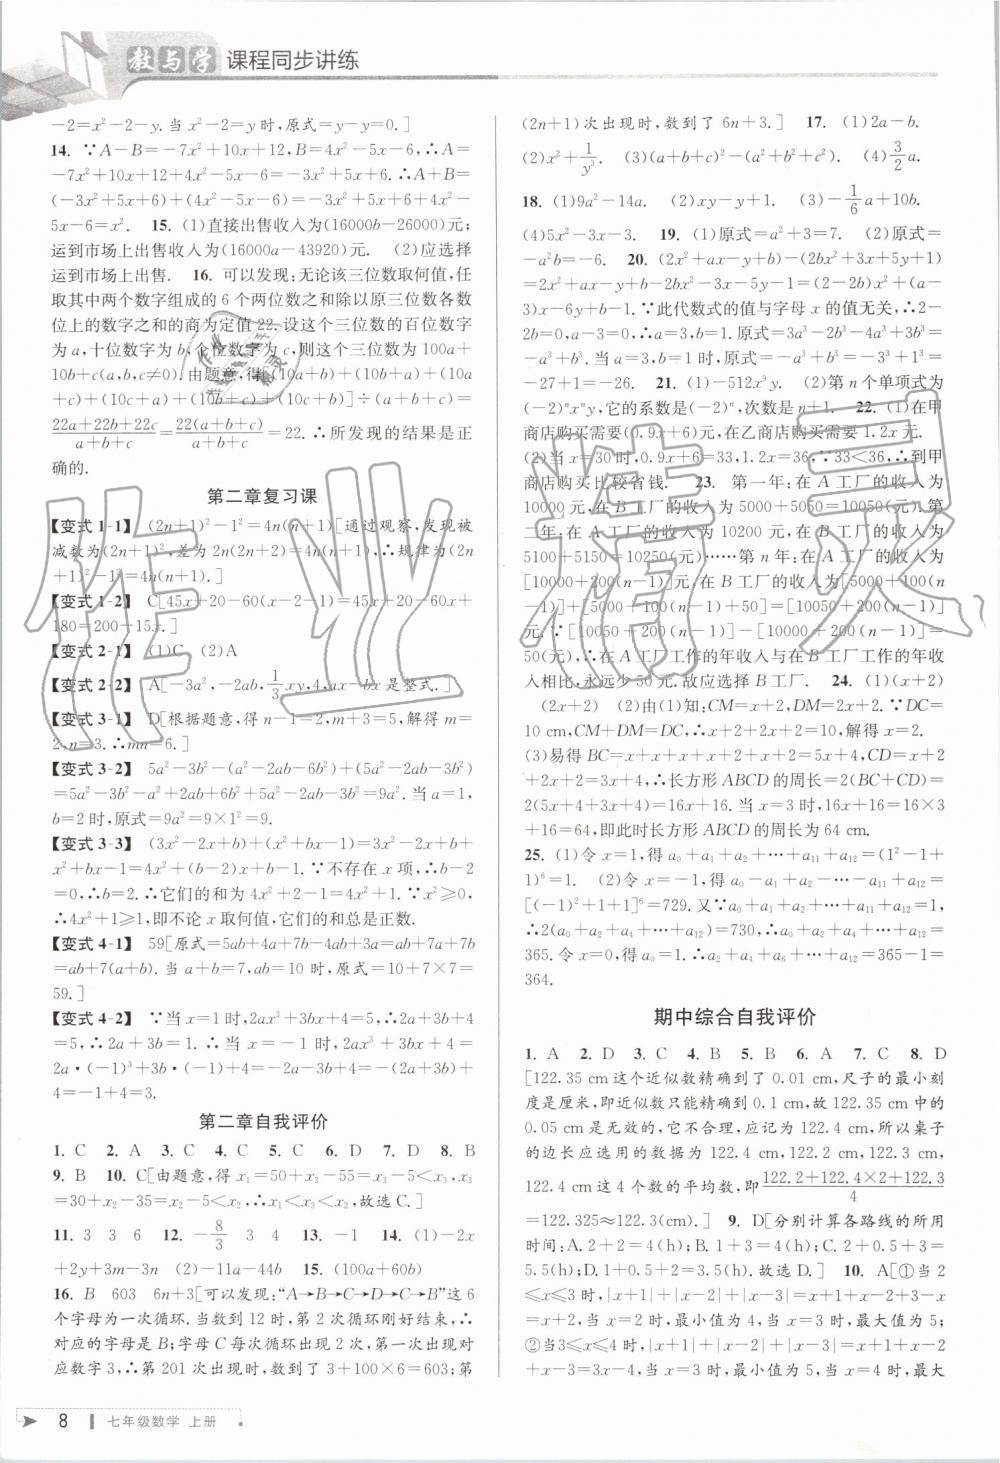 教与学 课程同步讲练
-2=x²-2-y.当 x²-2=y时,原式=y-y=0.]
14. ∵A-B=-7x²+10x+12,B=4x²-5x-6,∴A=
-7x²+10x+12+4x²-5x-6=-3x²+5x+6.∴A+B=
(-3x²+5x+6)+(4x²-5x-6)=-3x²+5x+6+4x²-
5x-6=x². 15. (1)直接出售收入为(16000b-26000)元;
运到市场上出售收入为(16000a-43920)元. (2)应选择
运到市场上出售. 16. 可以发现:无论该三位数取何值,任
取其中两个数字组成的6个两位数之和除以原三位数各数
位上的数字之和的商为定值22.设这个三位数的百位数字
为a,十位数字为b,个位数字为c,则这个三位数为100a+
10b+c(a,b,c≠0).由题意,得[(10a+b)+(10b+a)+(10a
+c)+(10c+a)+(10b+c)+(10c+b)]÷(a+b+c)=
(22a+22b+22c)/(a+b+c)=22(a+b+c)/(a+b+c)=22.∴所发现的结果是正
确的.
第二章复习课
【变式1-1】 (2n+1)²-1²=4n(n+1)[通过观察,发现被
减数为(2n+1)²,差为2n(2n+2)=4n(n+1),∴规律为(2n
+1)²-1²=4n(n+1).]
【变式1-2】 C[45x+20-60(x-2-1)=45x+20-60x+
180=200-15x.]
【变式2-1】 (1)C (2)A
【变式2-2】 A[-3a²,-2ab,1/3xy,4,ax-bx是整式.]
【变式3-1】 D[根据题意,得n-1=2,m+3=5,解得m=
2,n=3.∴mn=6.]
【变式3-2】 5a²-3b²-(a²-2ab-6b²)+(5a²-2ab-3b²)
=5a²-3b²-a²+2ab+6b²+5a²-2ab-3b²=9a².当a=1,
b=2时,原式=9a²=9×1²=9.
【变式3-3】 (3x²-2x+b)+(x²+bx-1)=3x²-2x+b+
x²+bx-1=4x²+(b-2)x+b-1.∵不存在x项,∴b-2
=0,∴b=2.∴它们的和为4x²+2-1=4x²+1.∵x²≥0,
∴4x²+1≥1,即不论x取何值,它们的和总是正数.
【变式4-1】 59[原式=5ab+4a+7b-4ab+3a=ab+7a+7b
=ab+7(a+b).当a+b=7,ab=10时,原式=10+7×7=
59.]
【变式4-2】 ∵当x=1时,2ax³+3bx+4=5,∴2a+3b+4
=5,∴2a+3b=1.∴当x=-1时,2ax³+3bx+4=
2a·(-1)³+3b·(-1)+4=-2a-3b+4=-(2a+3b)+4
=-1+4=3.
第二章自我评价
1. C 2. A 3. C 4. C 5. C 6. D 7. D 8. B
9. B 10. C[由题意,得x₁=50+x₃-55=x₃-5<x₃,x₂
=30+x₁-20=x₁+10... 
11. 3 3 6 12. -8/3 3 4 13. -1 14. (1)-2x
+2y+3m-3n (2)-11a-44b 15. (100a+60b)
16. B 603 6n+3[可以发现:“A→B→C→D→C→B”这6
个字母为一次循环.当数到12时,第2次循环刚好结束,∴
对应的字母是B;字母C每次循环出现2次,一次循环对
应数字3,∴第201次出现时,数到了3+100×6=603;第
(2n+1)次出现时,数到了6n+3.] 17. (1)2a-b.
(2)x²+1/y³. (3)(a+b+c)²-(a²+b²+c²). (4)3/2a.
18. (1)9a²-14a. (2)xy-y+1. (3)-1/6a+10b.
(4)5x²-3x-3. 19. (1)原式=a²+3=7. (2)原式=
-a²b=-6. 20. (2x²+ax-y+b)-(2bx²-3x+5y+1)
=2x²+ax-y+b-2bx²+3x-5y-1=(2-2b)x²+(a+
3)x-6y+b-1.∵此代数式的值与字母x的值无关,∴2-
2b=0,a+3=0,∴a=-3,b=1.原式=3a³-2b³-4a³+3b³=
-a³+b³.
-27+1=-26. 21. (1)-512x⁹y. (2)第n个单项式为
(-2)ⁿxⁿy,它的系数是(-2)ⁿ,次数是n+1. 22. (1)在甲
商店购买需要(0.9x+6)元,在乙商店购买需要1.2x元.
(2)当x=30时,0.9x+6=33,1.2x=36.∵33<36,∴到甲
商店购买比较省钱. 23. 第一年:在A工厂的收入为
10000元,在B工厂的收入为5000+5050=10050(元).第
二年:在A工厂的收入为10200元,在B工厂的收入为
5100+5150=10250(元)……第n年:在A工厂的收入为
[10000+200(n-1)]元,在B工厂的收入为[5000+100(n
-1)]+[5000+100(n-1)+50]=[10050+200(n-1)]
元.∵[10050+200(n-1)]-[10000+200(n-1)]=
50(元),∴在A工厂工作的年收入与在B工厂工作的年收
入相比,永远少50元.故应选择B工厂. 24. (1)(x+2)
(2x+2) (2)由(1)知:CM=x+2,DM=2x+2.∵DC=
10 cm,CM+DM=DC,∴x+2+2x+2=10,解得x=2.
(3)易得BC=x+x+x+x+2+x+2=5x+4,CD=x+2
+2x+2=3x+4,∴长方形ABCD的周长=2(BC+CD)=
2(5x+4+3x+4)=16x+16.当x=3时,16x+16=16×3
+16=64,即此时长方形ABCD的周长为64 cm.
25. (1)令x=1,得a₀+a₁+a₂+…+a₁₁+a₁₂=(1²-1+
1)⁶=1. (2)令x=-1,得a₀-a₁+a₂-…-a₁₁+a₁₂=
[(-1)²+1+1]⁶=729.又∵a₀+a₁+a₂+…+a₁₁+a₁₂=1,
∴2(a₀+a₂+a₄+…+a₁₂)=730,∴a₀+a₂+a₄+…+a₁₂=
365.令x=0,得a₀=1.∴a₂+a₄+a₆+…+a₁₂=365-1=
364.
期中综合自我评价
1. A 2. D 3. C 4. B 5. B 6. A 7. C 8. D
[122.35 cm这个近似数精确到了0.01 cm,尺子的最小刻
度是厘米,即近似数只能精确到0.1 cm,故122.35 cm中的
0.05 cm是无效的,它不合理,应记为122.4 cm.所以桌子
的边长应选用的数据为122.4 cm,122.2 cm,122.3 cm,
122.4 cm这4个数的平均数,即(122.2+122.4×2+122.3)/4
=122.325≈122.3(cm).] 9. D[分别计算各路线的所用
时间:A.2+2=4(h);B.1+3=4(h);C.2+0.5+3=
5.5(h);D.1+0.5+2=3.5(h).故选D.] 10. A[①当2
≤x≤3时,|x+1|+|x-2|+|x-3|=x+1+x-2+3-x=
x+2,当x=2时,最小值为4,当x=3时,最大值为5;
②当3≤x≤4时,|x+1|+|x-2|+|x-3|=x+1+x-2
+x-3=3x-4,当x=3时,最小值为5,当x=4时,最大
8 七年级数学 上册
作业精灵